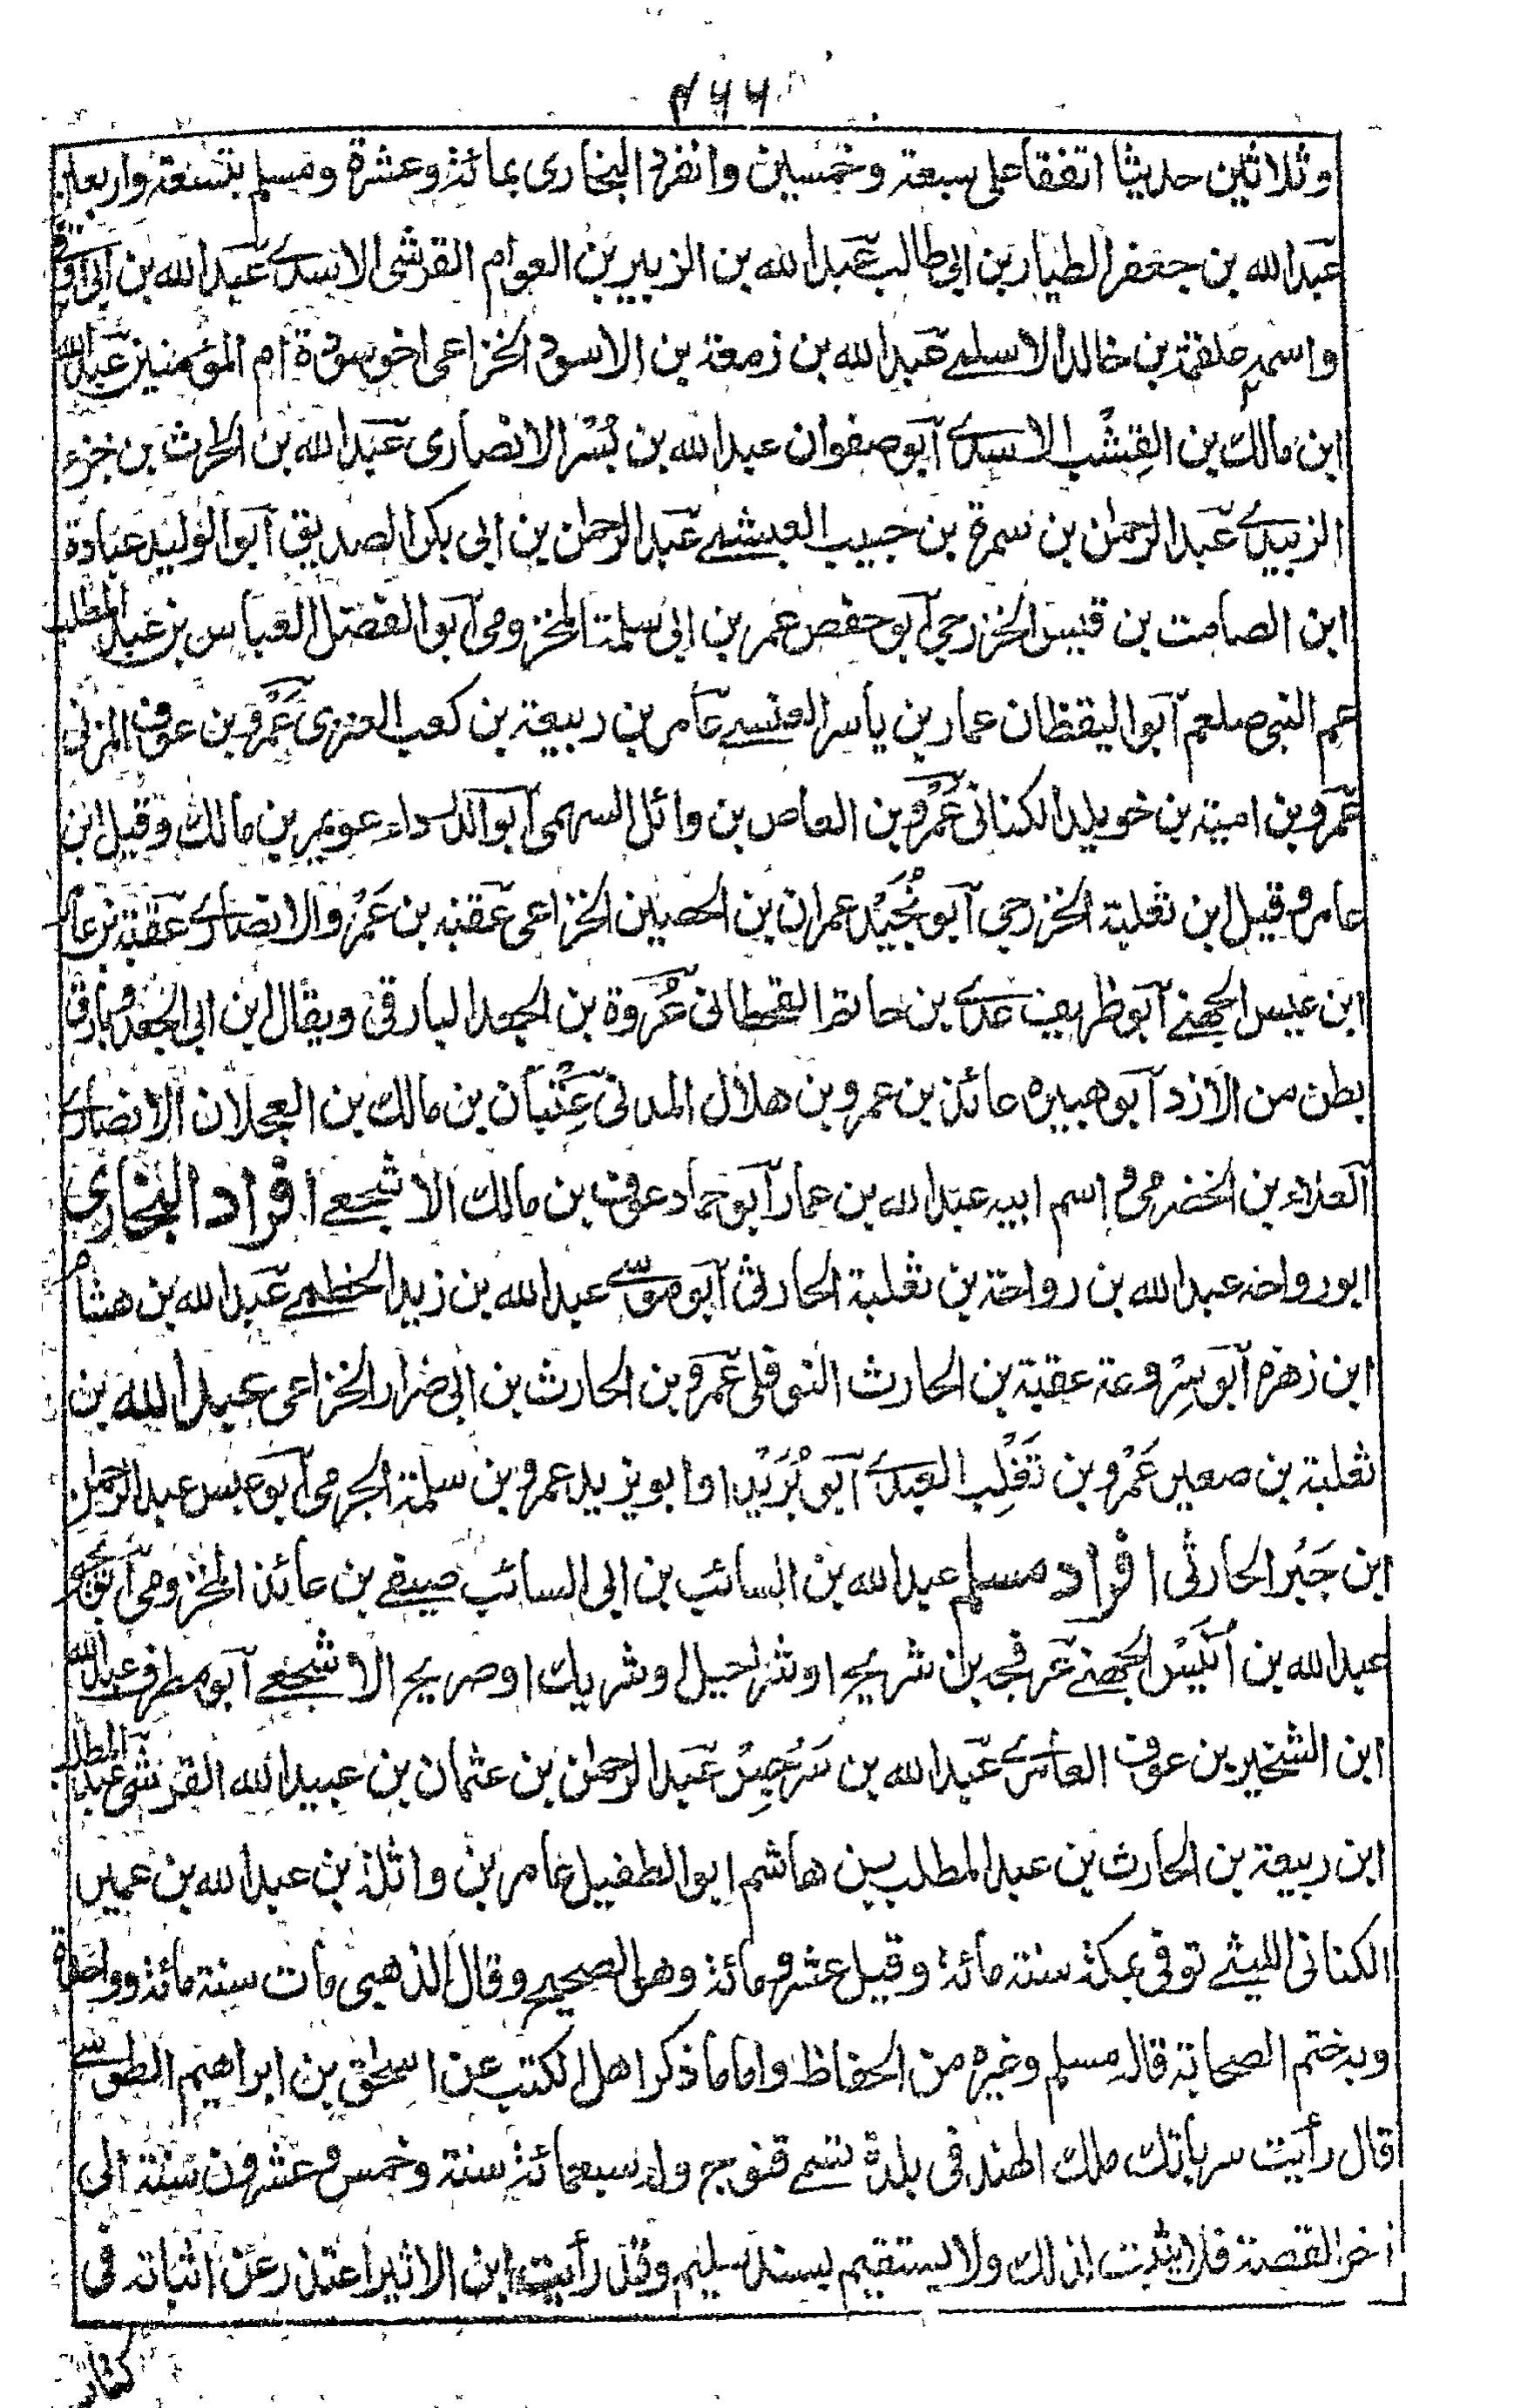 وثلاثين حديثا اتفقا على سبعة وخمسين وانفرد البخارى بمائة وعشرة ومسلم بتسعة واربعين
عبد الله بن جعفر الطيار بن ابى طالب عبد الله بن الزبير بن العوام القرشى الاسدى عبد الله بن ابى اوفى
واسمه علقمة بن خالد الاسلمى عبد الله بن زمعة بن الاسود الخزاعى اخو سودة ام المؤمنين عبد الله
ابن مالك بن القِشْب الاسدى ابو صفوان عبد الله بن بُسْر الانصارى عبد الله بن الحرث بن جزء
الزبيدى عبد الرحمن بن سمرة بن حبيب العبشمى عبد الرحمن بن ابى بكر الصديق ابو الوليد عبادة
ابن الصامت بن قيس الخزرجى ابو حفص عمر بن ابى سلمة المخزومى ابو الفضل العباس بن عبد المطلب
عم النبى صلعم ابو اليقظان عمار بن ياسر العنسى عامر بن ربيعة بن كعب العنزى عَمْرو بن عوف المزنى
عمرو بن امية بن خويلد الكنانى عَمْرو بن العاص بن وائل السهمى ابو الدرداء عويمر بن مالك وقيل ابن
عامر وقيل ابن ثعلبة الخزرجى ابو نُجَيْد عمران بن الحصين الخزاعى عقبة بن عَمْرو الانصارى عقبة بن عامر
ابن عبس الجهنى ابو ظريف عدى بن حاتم القحطانى عُروة بن الجعد البارقى ويقال ابن ابى الجعد وبارق
بطن من الازد ابو هبيرة عائذ بن عمرو بن هلال المدنى عِتْبان بن مالك بن العجلان الانصارى
العلاء بن الحضرمى واسم ابيه عبد الله بن عمار ابو حماد عوف بن مالك الاشجعى افراد البخارى
ابو رواحة عبد الله بن رواحة بن ثعلبة الحارثى ابو موسى عبد الله بن زيد الخطمى عبد الله بن هشام
ابن زهرة ابو سِروعة عقبة بن الحارث النوفلى عمرو بن الحارث بن ابى ضرار الخزاعى عبد الله بن
ثعلبة بن صعير عَمْرو بن تَغْلِب العبدى ابو بُرَيْد او ابو يزيد عمرو بن سلمة الجرمى ابو عبس عبد الرحمن
ابن جَبْر الحارثى افراد مسلم عبد الله بن السائب بن ابى السائب صيفى بن عائذ المخزومى ابو يحيى
عبد الله بن اُنَيْس الجهنى عرفجة بن شريح او شراحيل او شريك او صريح الاشجعى ابو مطرف عبد الله
ابن الشخير بن عوف العامرى عبد الله بن سَرْجِس عبد الرحمن بن عثمان بن عبيد الله القرشى عبد المطلب
ابن ربيعة بن الحارث بن عبد المطلب بن هاشم ابو الطفيل عامر بن واثلة بن عبد الله بن عمير
الكنانى الليثى توفى بمكة سنة مائة وقيل عشر ومائة وهو الصحيح وقال الذهبى مات سنة مائة وواحدة
وبه ختم الصحابة قاله مسلم وغيره من الحفاظ واما ما ذكر اهل الكتب عن اسحق بن ابراهيم الطوسى
قال رأيت سرباتك ملك الهند فى بلدة تسمى قنوج وله سبعمائة سنة وخمس وعشرون سنة الى
اخر القصة فلا يثبت ذلك ولا يستقيم بسند سليم وقد رأيت ابن الاثير اعتذر عن اثباته فى
كتابه